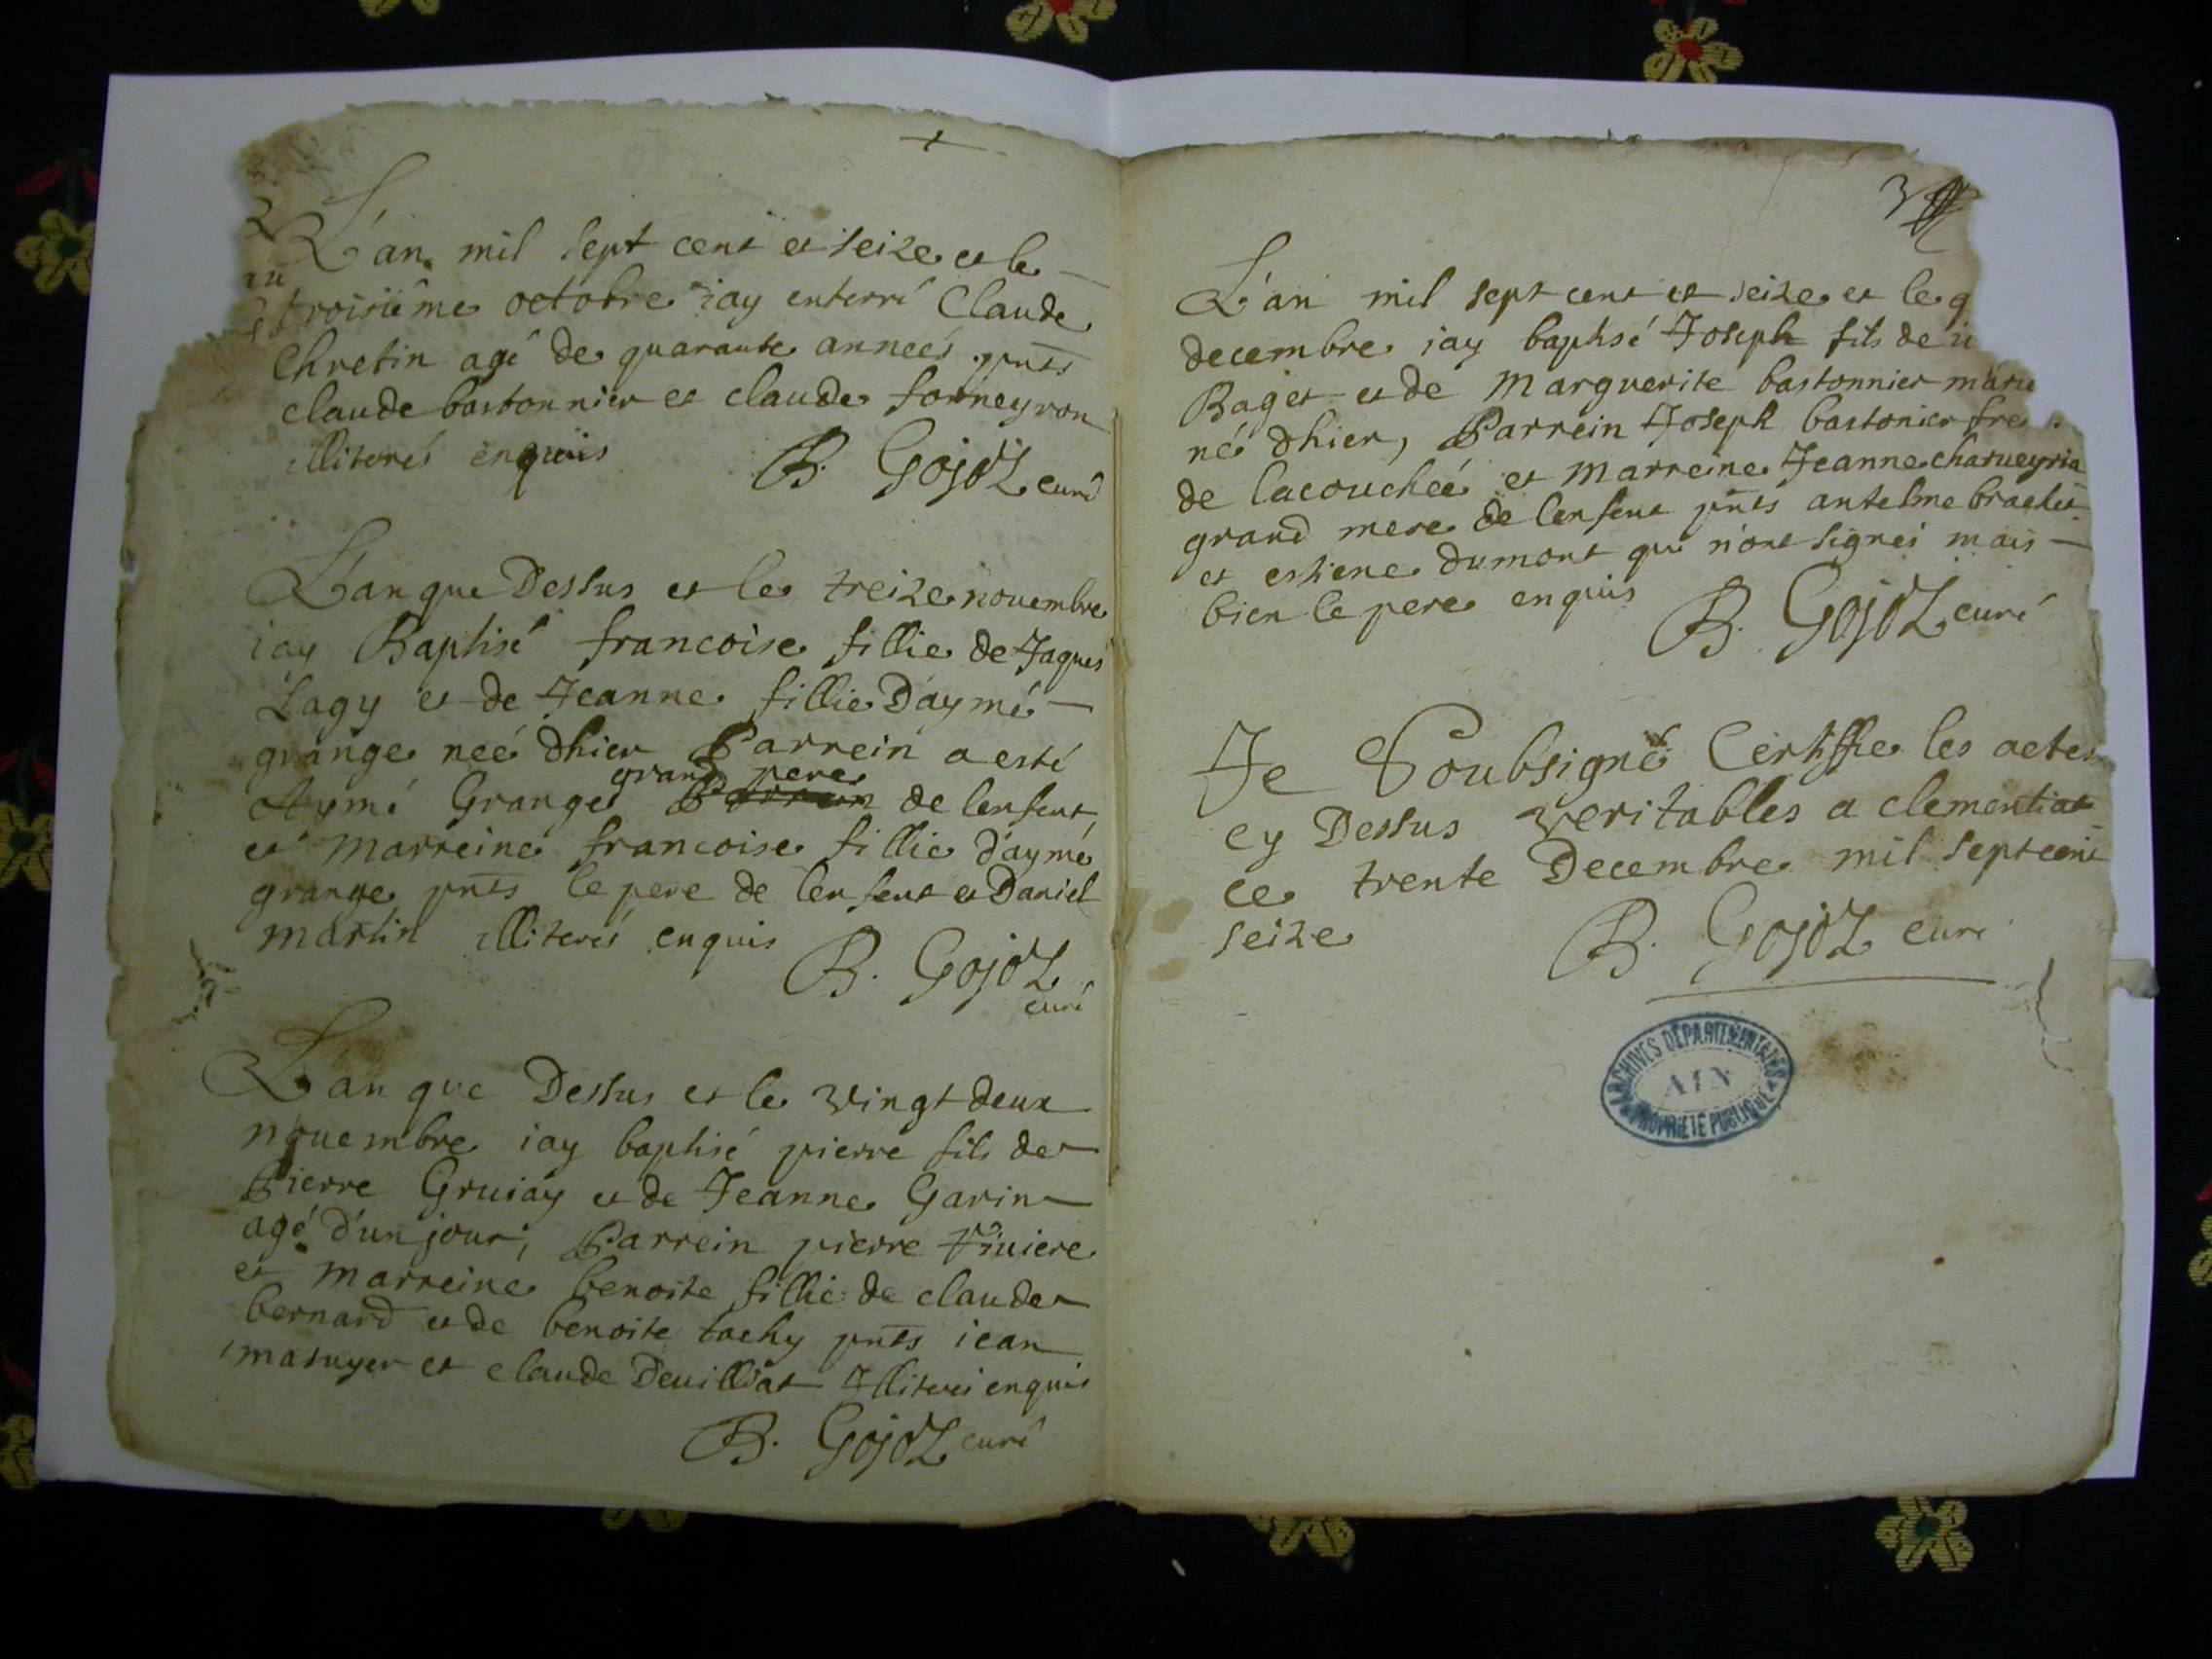 L'an mil sept cent et seize et le
troisiême octobre iay enterré Claude
Chretin agé de quarante anneés pnts
claude bastonnier et claude forneyron
illiterés enquis B. Gojoz curé
L'an que Dessus et le treize nouembre
iay Baptisé francoise fillie de Jaques
Lagy et de Jeanne fillie D'aymé
grange neé dhier Parrein a esté
grand pere
Aymé Grange Parrein de lenfent
et Marreine francoise fillie d'aymé
grange pnts le pere de lenfent et Daniel
martin illiterés enquis B. Gojoz
curé
L'an que Dessus et le vingt deux
nouembre iay baptisé pierre fils de
Pierre Gruiay et de Jeanne Garin
agé d'un jour, Parrein pierre Viuiere
et Marreine benoite fillie de claude
bernard et de benoite tachy pnts iean
masuyer et claude Deuilliat Illiterés enquis
B. Gojoz curé
3
L'an mil sept cent et seize et le q
decembre iay baptisé Joseph fils de
Baget et de Marguerite bastonnier marie
né dhier, Parrein Joseph bastonier fre
de lacouchéé et Marreine Jeanne charueyria
grand mere de lenfent pnts antelme brachet
et estiene dumont qui n'ont signés mais
bien le pere enquis B. Gojoz curé
Je Soubsigné Certiffie les actes
cy Dessus veritables a clementiat
ce trente Decembre mil sept cent
seize B. Gojoz curé
ARCHIVES DÉPARTEMENTALES
AIN
PROPRIÉTÉ PUBLIQUE